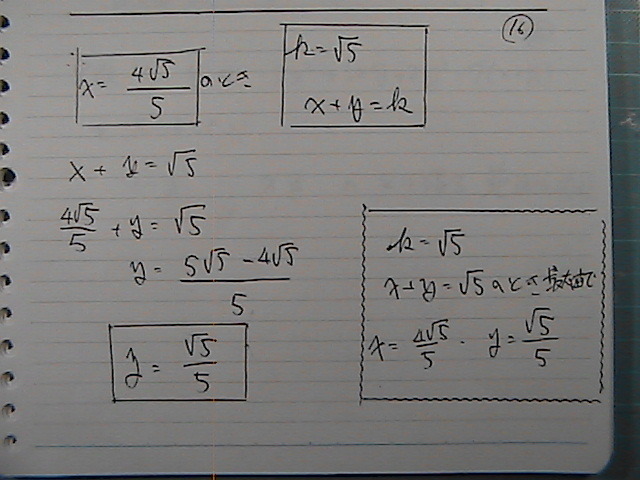 ⑯
x = 4√5/5 のとき
k = √5
x + y = k
x + y = √5
4√5/5 + y = √5
y = (5√5 - 4√5)/5
y = √5/5
k = √5
x + y = √5 のとき最大値で
x = 4√5/5 ・ y = √5/5